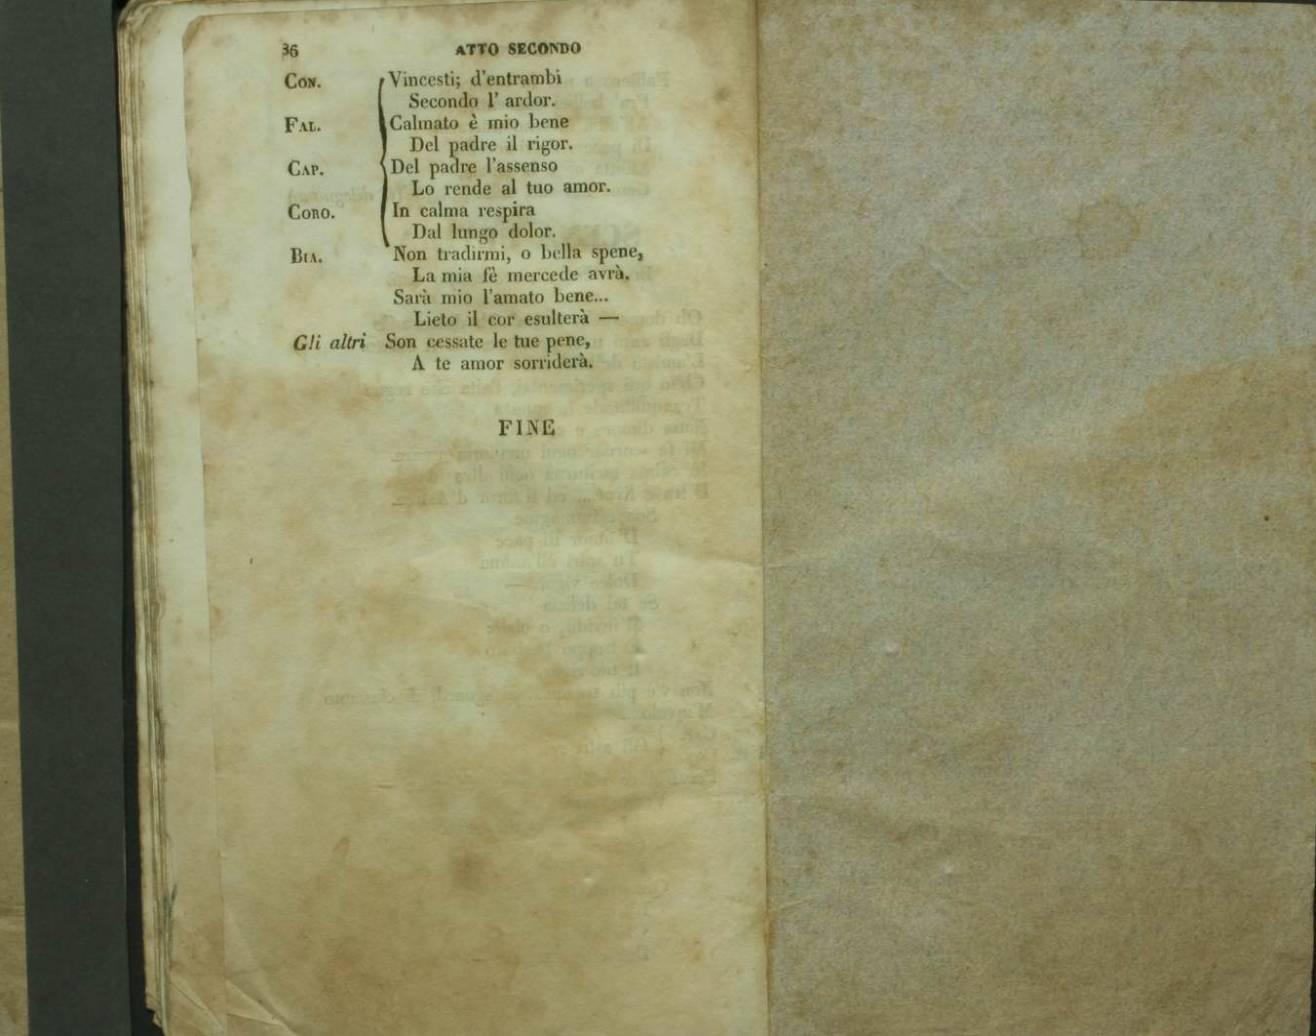 36 ATTO SECONDO
CON. Vincesti; d'entrambi
Secondo l' ardor.
FAL. Calmato è mio bene
Del padre il rigor.
CAP. Del padre l'assenso
Lo rende al tuo amor.
CORO. In calma respira
Dal lungo dolor.
BIA. Non tradirmi, o bella spene,
La mia fè mercede avrà.
Sarà mio l'amato bene...
Lieto il cor esulterà —
Gli altri Son cessate le tue pene,
A te amor sorriderà.
FINE